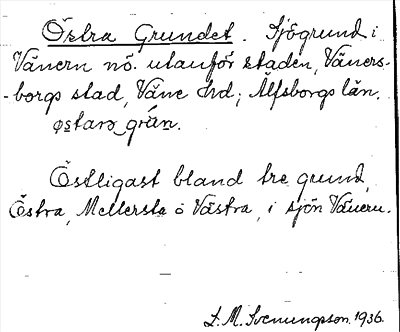 Östra Grundet. Sjögrund i
Vänern nö. utanför staden, Väners-
-borgs stad, Väne hd; Älfsborgs län.
østarə grẳn.
Östligast bland tre grund,
Östra, Mellersta o Västra, i sjön Vänern.
L. M. Svenungsson. 1936.